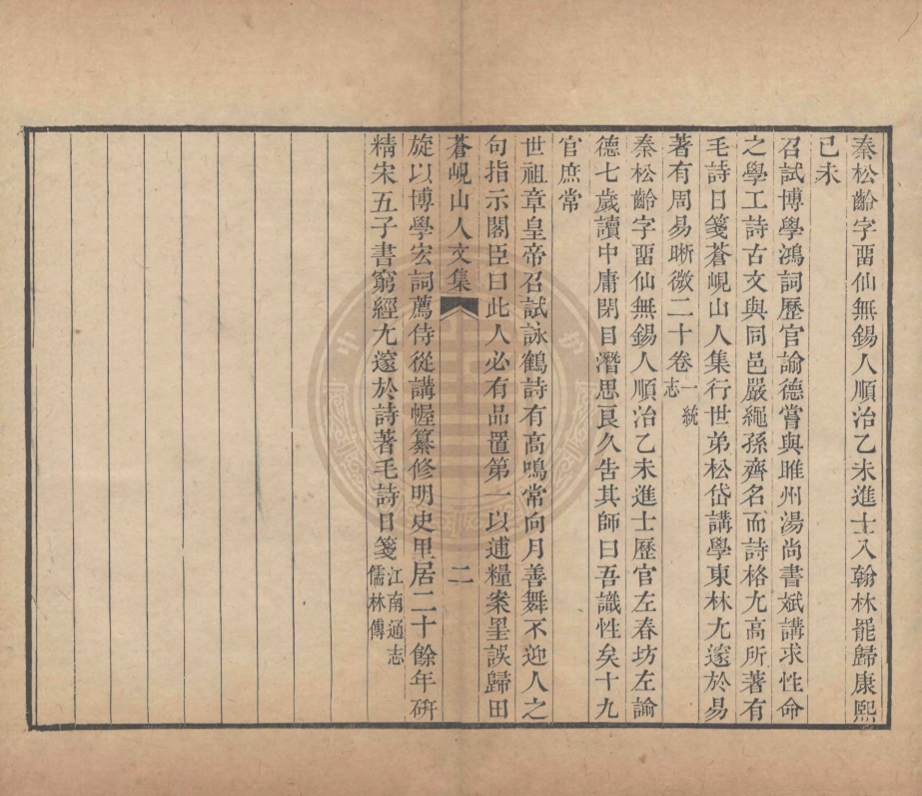 秦松齡字畱仙無錫人順治乙未進士入翰林罷歸康熙
己未
召試博學鴻詞歷官諭德嘗與睢州湯尚書斌講求性命
之學工詩古文與同邑嚴繩孫齊名而詩格尢高所著有
毛詩日箋蒼峴山人集行世弟松岱講學東林尢邃於易
著有周易晰微二十卷一統志
秦松齡字畱仙無錫人順治乙未進士歷官左春坊左諭
德七歲讀中庸閉目潛思良久告其師曰吾識性矣十九
官庶常
世祖章皇帝召試詠鶴詩有高鳴常向月善舞不迎人之
句指示閣臣曰此人必有品置第一以逋糧案罣誤歸田
蒼峴山人文集 二
旋以博學宏詞薦侍從講幄纂修明史里居二十餘年硏
精宋五子書窮經尢邃於詩著毛詩日箋江南通志儒林傳